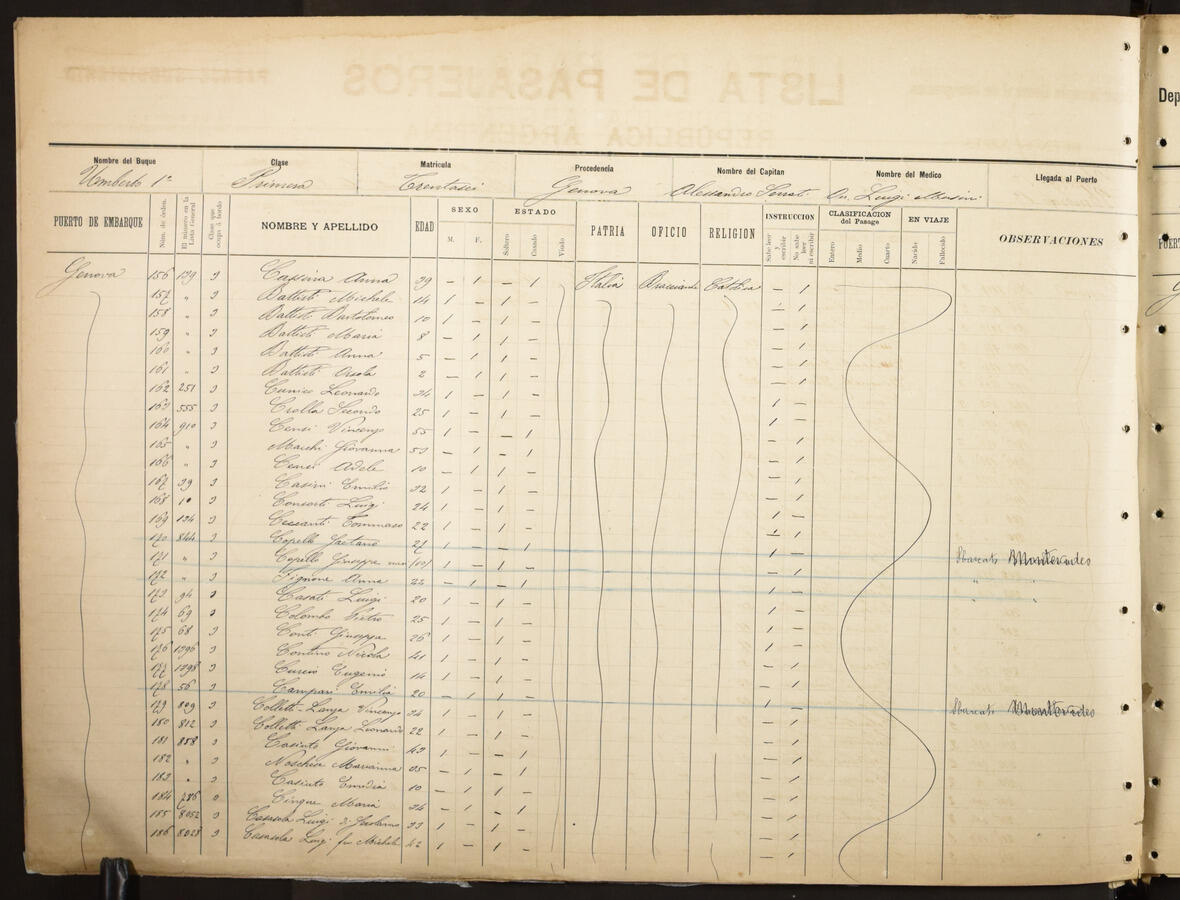 Nombre del Buque Clase Matricula Procedencia Nombre del Capitan Nombre del Medico Llegada al Puerto
Umberto 1º Primera Genova Alessandro Dn. Luigi
PUERTO DE EMBARQUE Núm. de órden. El número en la Lista General Clase que ocupa á bordo NOMBRE Y APELLIDO EDAD SEXO M. F. ESTADO Soltero Casado Viudo PATRIA OFICIO RELIGION INSTRUCCION Sabe leer y escribir No sabe leer ni escribir CLASIFICACION del Pasage Entero Medio Cuarto EN VIAJE Nacido Fallecido OBSERVACIONES
Genova 156 139 3 Cassina Anna 39 - / - / Italia Bracciante Catolica - /
157 " 3 Battisti Michele 14 / - / - - /
158 " 3 Battisti Bartolomeo 10 / - / - - /
159 " 3 Battisti Maria 8 - / / - - /
160 " 3 Battisti Anna 5 - / / - - /
161 " 3 Battisti Orsola 2 - / / - - /
162 251 3 Cunico Leonardo 34 / - / - / -
163 555 3 Crolla Secondo 25 / - / - / -
164 910 3 Censi Vincenzo 55 / - - / / -
165 " 3 Macchi Giovanna 53 - / - / - /
166 " 3 Censi Adele 10 - / / - - /
167 39 3 Casini Emilio 32 / - / - / -
168 10 3 Consorti Luigi 24 / - / - / -
169 134 3 Tommaso 22 / - / - / -
170 844 3 Capello Gaetano 27 / - - /
171 " 3 Capello Giuseppe / - / - - / Sbarcato Montevideo
172 " 3 Pignone Anna 22 - / - / " "
173 94 3 Casati Luigi 20 / - / - / - " "
174 69 3 Colombo Pietro 25 / - / - / -
175 68 3 Conti Giuseppe 26 / - / - / -
176 1396 3 Contino Nicola 41 / - - / - /
177 1398 3 Curcio Eugenio 14 / - / - - /
178 56 3 Campari Emilia 20 - / / -
179 809 3 Colletti-Lanza Vincenzo 34 / - - / Sbarcato Montevideo
180 812 3 Colletti Lanza Leonardo 22 / - / - - /
181 858 3 Casiuto Giovanni 43 / - - / - /
182 " 3 Noschese Marianna 35 - / - / - /
183 " 3 Casiuto Emidia 10 - / / - - /
184 786 Cinque Maria 34 - / - / - /
185 8052 3 Casasola Luigi di 33 / - / - / -
186 8028 3 Casasola Luigi fu Michele 42 / - - / / -